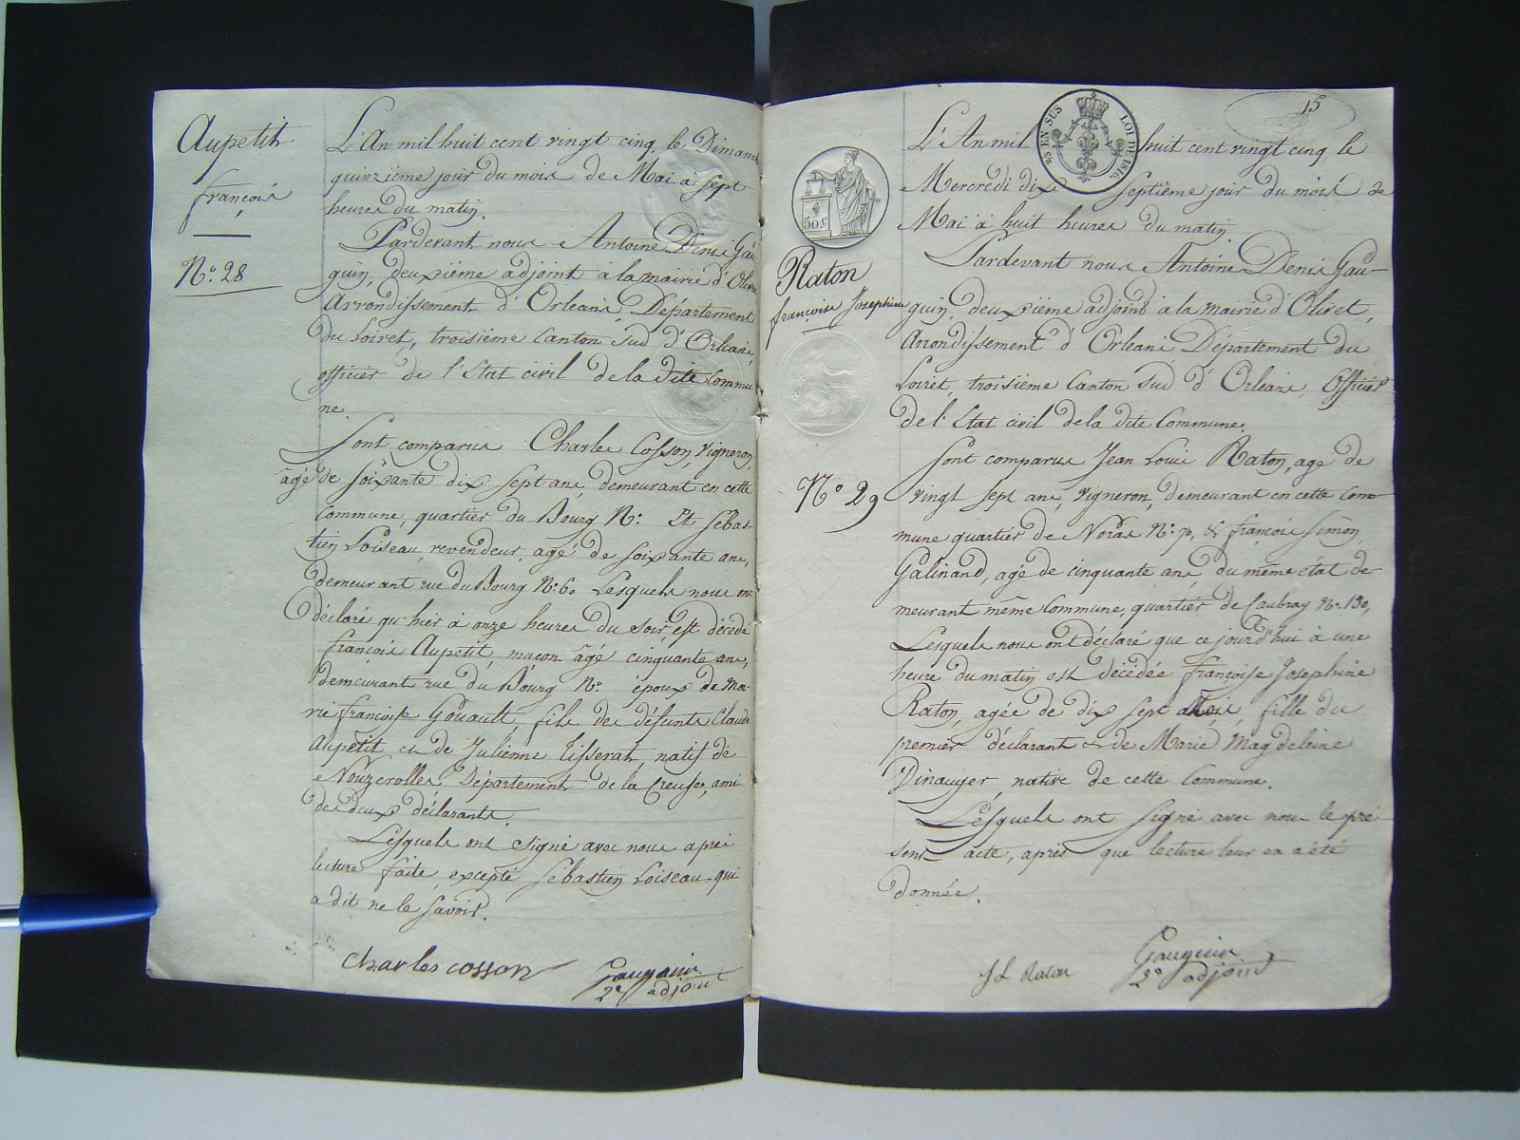 Aupetit
françois
N° 28
L'An mil huit cent vingt cinq le Dimanc
quinzième jour du mois de Mai à Sept
heures du matin.
Pardevant nous Antoine Denis Gau
guin, deuxième adjoint à la mairie d'Olivet
Arrondissement d'Orleans, Département
du Loiret, troisième Canton Sud d'Orleans,
officier de l'Etat civil de la dite Commu
ne.
Sont comparus Charles Cosson, Vigneron,
âgé de soixante dix sept ans, demeurant en cette
Commune, quartier du Bourg N°: Et Sébas
tien Loiseau, revendeur, agé de soixante ans,
demeurant rue du Bourg N° 60 Lesquels nous on
déclaré qu'hier à onze heures du soir, est décédé
françois Aupetit, maçon âgé cinquante ans,
demeurant rue du Bourg N° époux de Ma-
rie françoise Gouault, fils de défunts Claude
Aupetit et de Julienne Tisserat, natif de
Nouzerolles, Département de la Creuse, ami
des deux déclarants.
Lesquels ont signé avec nous après
lecture faite, excepté Sébastien Loiseau qui
a dit ne le savoir.
Charles cosson
Gauguin
2e adjoint
15
EN SUS
LOI DE 1816
50 c
Raton
françoise Josephine
N° 29
L'An mil huit cent vingt cinq le
Mercredi dix Septième jour du mois de
Mai à huit heures du matin
Pardevant nous Antoine Denis Gau-
guin, deuxième adjoint à la mairie d'Olivet,
Arrondissement d'Orleans Département du
Loiret, troisième Canton Sud d'Orleans, Officier
de l'Etat civil de la dite Commune.
Sont comparus Jean Louis Raton, agé de
vingt sept ans, vigneron, demeurant en cette Com-
mune quartier de Noras N° 70, & françois Simon
Galinand, agé de cinquante ans, du même état de-
meurant même Commune, quartier de Caubray N° 130,
Lesquels nous ont déclaré que ce jourd'hui à une
heure du matin est décédée françoise Josephine
Raton, agée de dix sept mois, fille du
premier déclarant & de Marie Magdeleine
Dinauyer, native de cette Commune.
Lesquels ont signé avec nous le pré
sent acte, après que lecture leur en a été
donnée.
J L Raton
Gauguin
2e adjoint